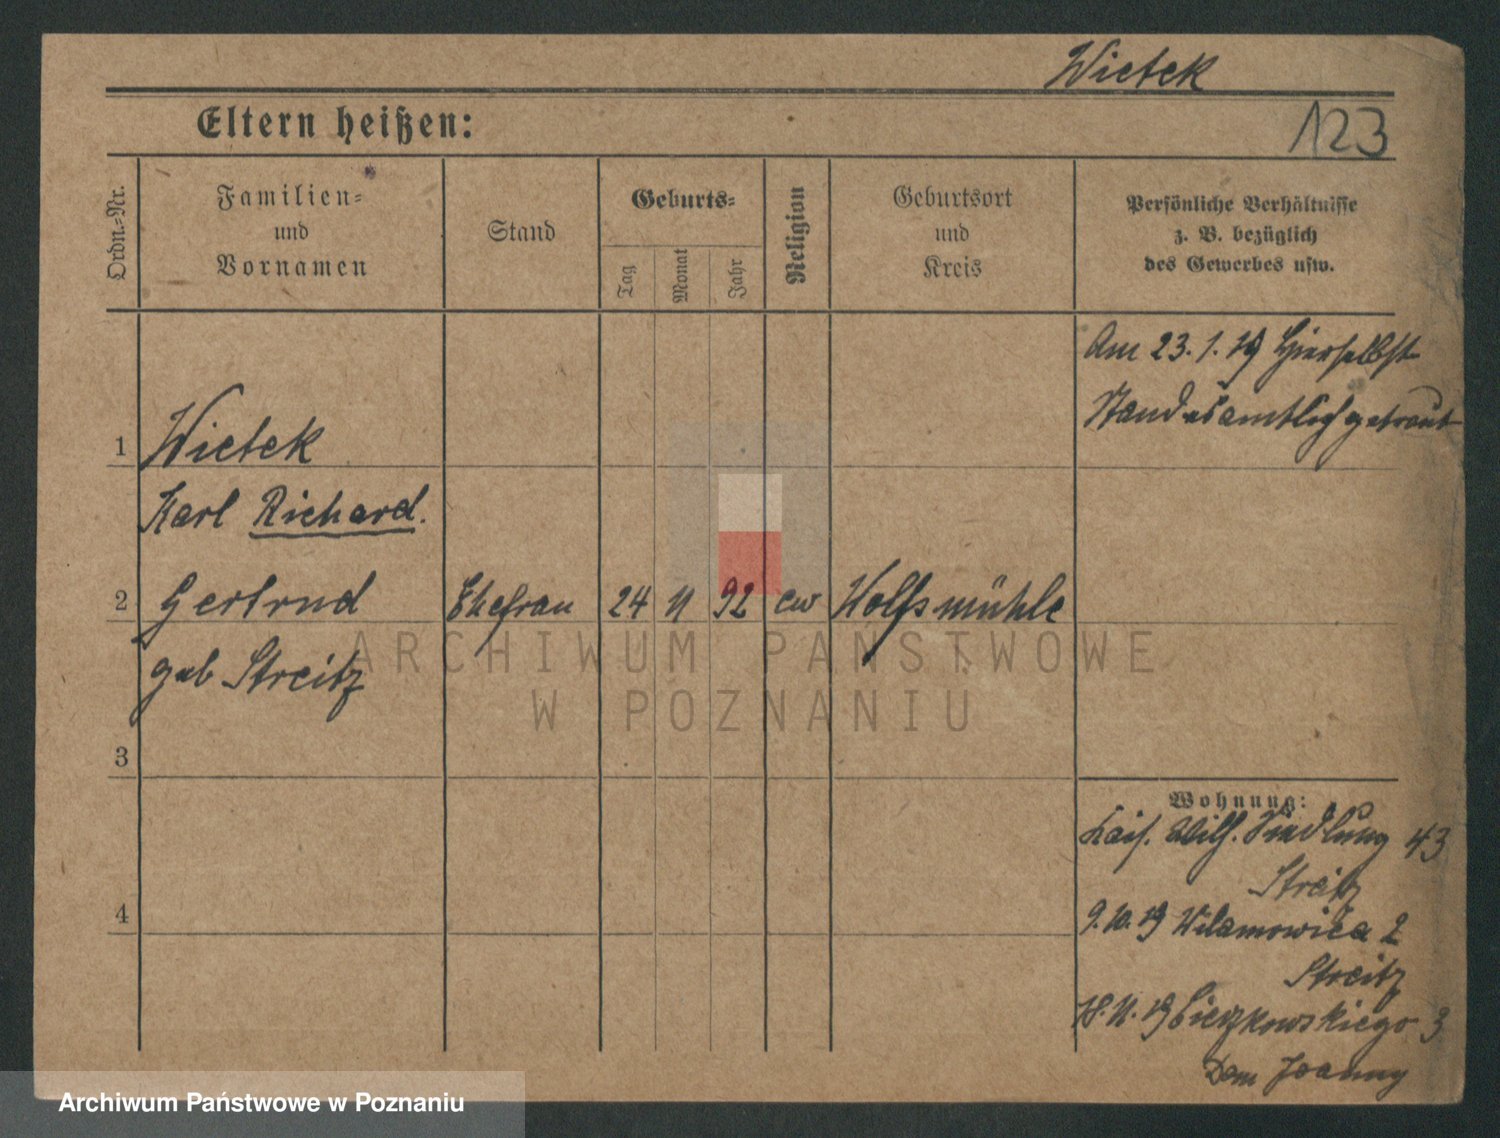 Wietek
Eltern heißen:
123
Ordn.-Nr.
Familien-
und
Vornamen
Stand
Geburts-
Tag
Monat
Jahr
Religion
Geburtsort
und
Kreis
Persönliche Verhältnisse
z. B. bezüglich
des Gewerbes usw.
Am 23.1.19 Hierselbst
Standesamtlich getraut
1 Wietek
Karl Richard.
2 Gertrud Ehefrau 24 11 92 ev Wolfsmühle
geb Streitz
3
4
Wohnung:
Kais. Wilh. Siedlung 43
Streitz
9.10.19 Wilamowica 2
Streitz
18.11.19 Cieszkowskiego 3
Dom Joanny
ARCHIWUM PAŃSTWOWE
W POZNANIU
Archiwum Państwowe w Poznaniu